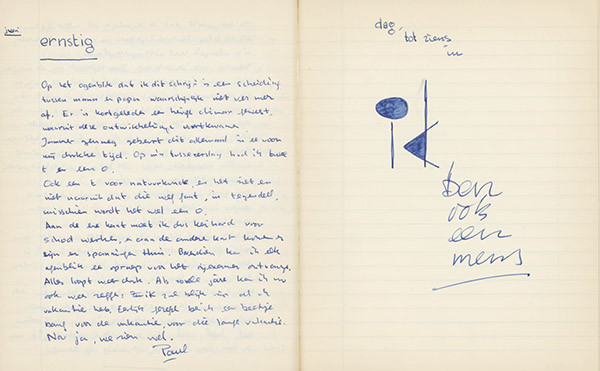 juni
ernstig
Op het ogenblik dat ik dit schrijf is een scheiding
tussen mama en papa waarschijnlijk niet ver meer
af. Er is kortgeleden een climax geweest,
waaruit deze ontwikkelingen voortkwamen.
Jammer genoeg gebeurt dit allemaal in een voor
mij drukke tijd. Op mijn had ik twee
t en een O.
Ook een t voor natuurkunde, en het ziet er
niet naar uit dat die weg gaat, in tegendeel,
misschien wordt het wel een O.
Aan de ene kant moet ik dus keihard voor
school werken, aan de andere kant
zijn er spanningen thuis. Bovendien kan ik elk
ogenblik een oproep voor het ontvangen.
Alles loopt Als ik nu
ook weer zeggen: Ik zal blij zijn als ik
vakantie heb. Eerlijk gezegd ben ik een beetje
bang voor de vakantie, voor die lange vakantie.
Nou ja, we zien wel.
Paul
dag,
tot ziens
in
ik
ben
ook
een
mens